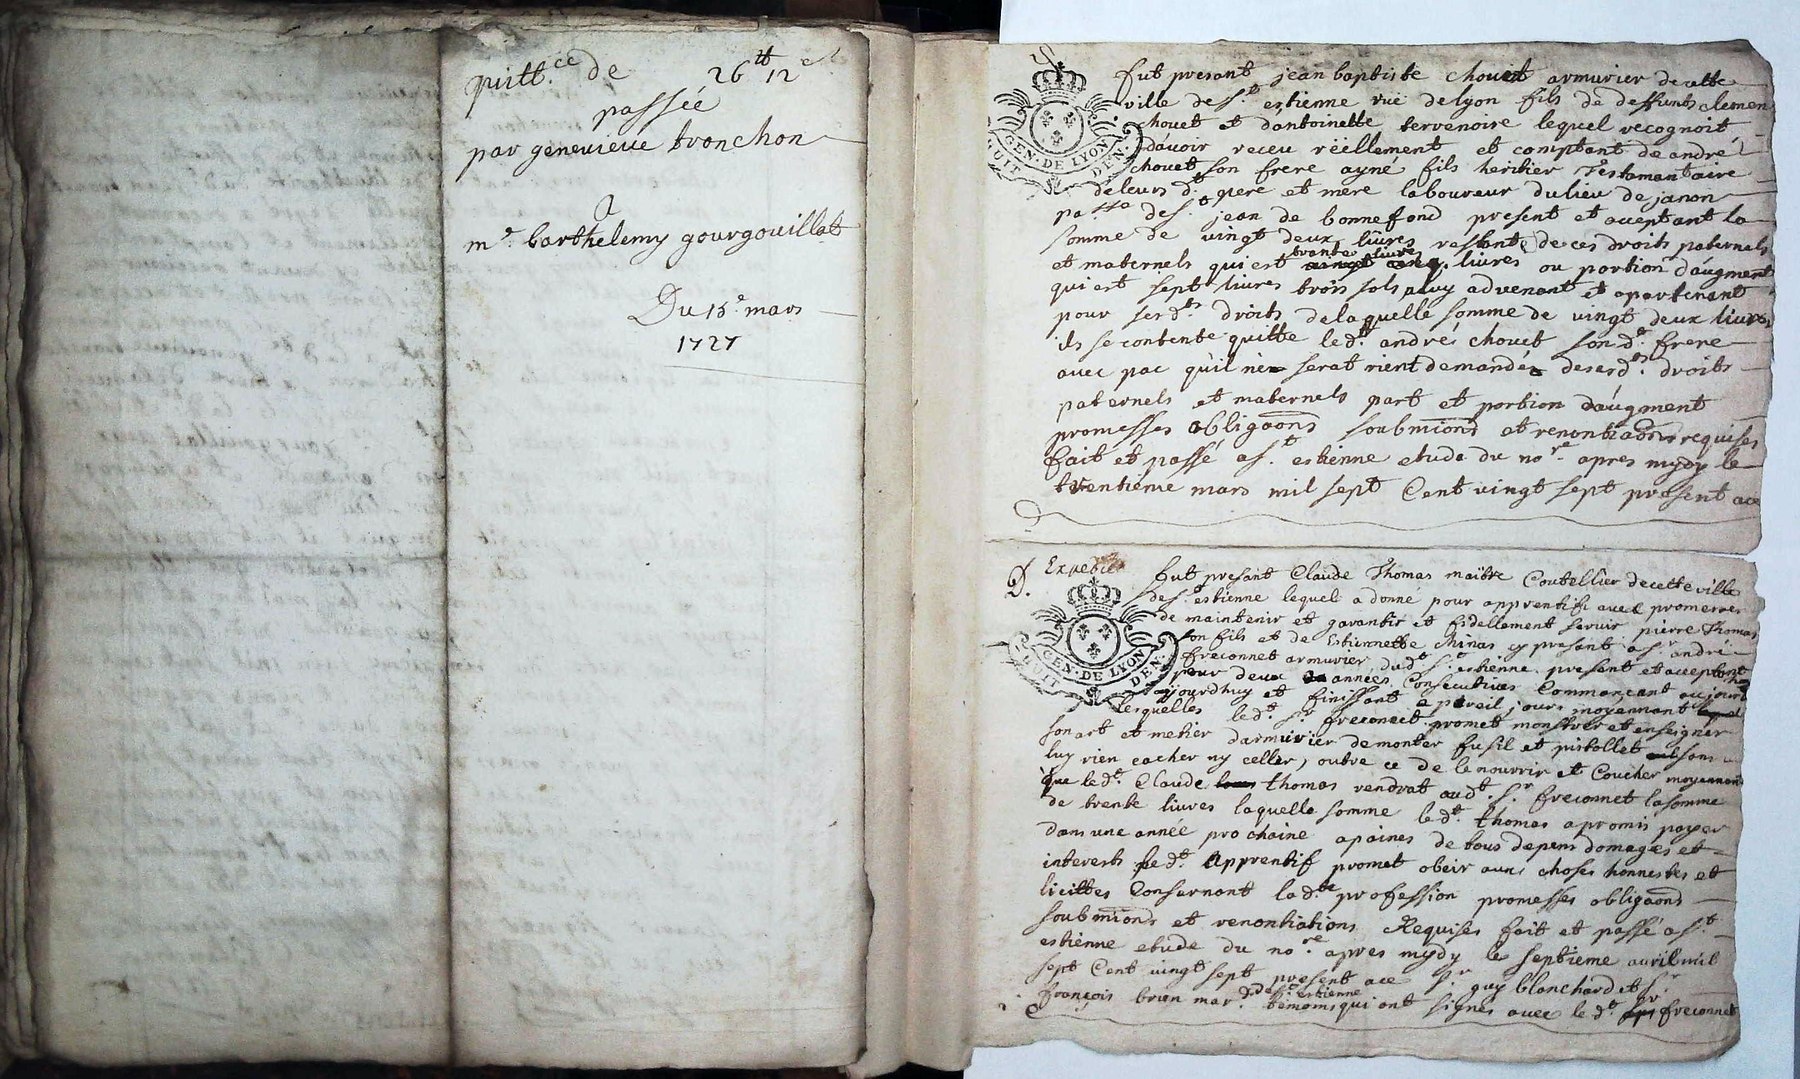 quitt.ce de 26tt 12
passée
par genevieve tronchon
a
m.e barthelemy gourgouillat
Du 15.e mars
1727
fut presant jean baptiste chouet armurier de cette
ville de s.t estienne rüe de lyon fils de deffunts clemen
chouet et d'antoinette tervenoire lequel recognoit
davoir receu réellement et comptant de andré
chouet son frere ayné fils heritier Testamantaire
de leurs d.t pere et mere laboureur du lieu de janon
pa.sse de s.t jean de bonnefond present et aceptant la
somme de vingt deux livres restante de ces droits paternels
et maternels qui est trante livres livres ou portion daugment
qui est sept livres trois sols a luy advenant et apartenant
pour ser d.ts droits de laquelle somme de vingt deux livres
ils se contente quitte le d.t andrés chouet son d.t frere
avec pac qu'il ne serat rient demandé de ses d.ts droits
paternels et maternels part et portion daugment
promesses obligaons soubmions et renontiaons requises
fait et passé a s.t estienne etude du no.re apres mydy le
trentieme mars mil sept Cent vingt sept présent ace
D. Expedie
GEN · DE LYON
HUIT DEN ·
fut presant Claude Thomas maitre Coutellier de cette ville
de s.t estienne lequel a donné pour apprentifi avec promesses
de maintenir et garantir et fidellement servir pierre Thomas
son fils et de Estiennette chinas cy presant a s.r andré
freconnet armurier dud.t s.t estienne present et aceptant
pour deux années Consecutives Commancant au jour
dajourdhuy et finissant a pareil jours moyennant
lesquelles led.t s.r freconnet promet monstrer et enseigner
son art et metier darmurier de monter fusil et pistollet
luy rien cacher ny celler, outre ce de le nourrir et Coucher moyennant
que led.t Claude thomas rendrat aud.t s.r freconnet la somme
de trente livres laquelle somme led.t thomas a promis payer
dans une année prochaine apaines de tous depens domages et
interests led.t Apprentif promet obeir aux choses honnestes et
licittes Consernant lad.te profession promesses obligaons
soubmions et renontiations Requises fait et passé a s.t
estienne etude du no.re apres mydy le septieme avril mil
sept Cent vingt sept present ace s.r guy blanchard et s.r
françois brun mar.d de s.t estienne temoins qui ont signes avec led.t s.r freconnet